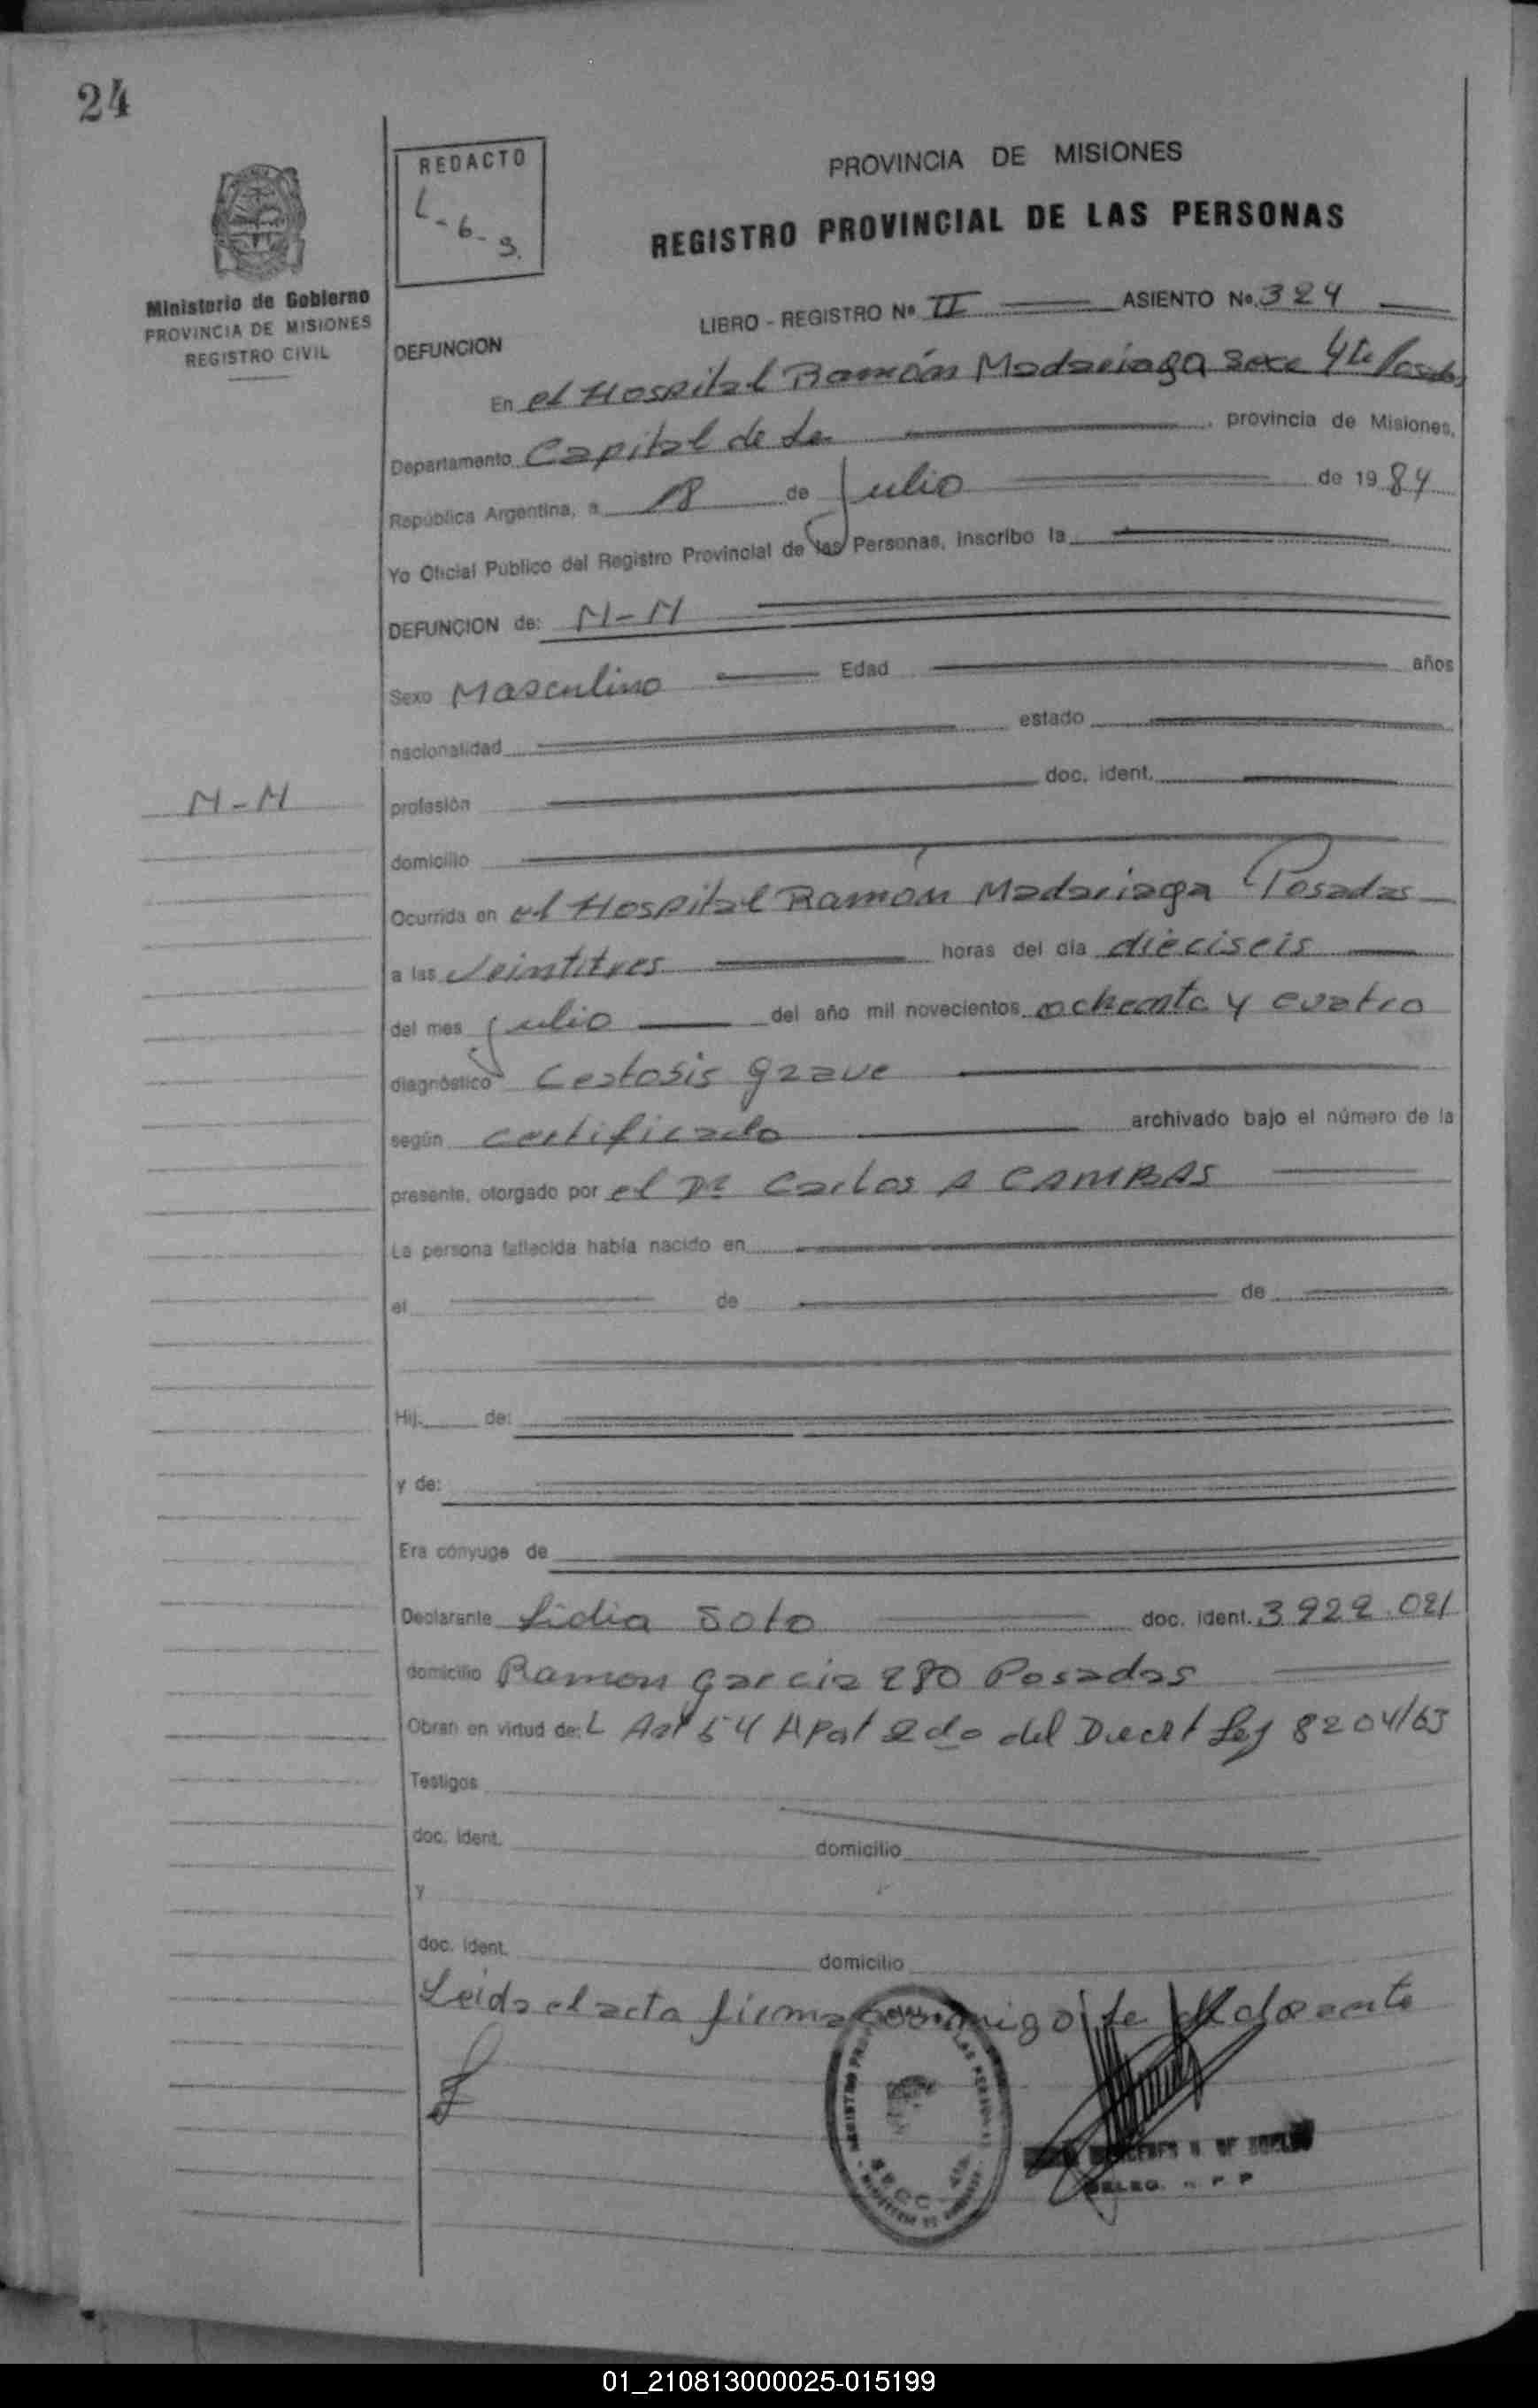 24
REDACTO
L-6-3.
PROVINCIA DE MISIONES
REGISTRO PROVINCIAL DE LAS PERSONAS
Ministerio de Gobierno
PROVINCIA DE MISIONES
REGISTRO CIVIL
LIBRO - REGISTRO Nº II ASIENTO Nº 324
DEFUNCION
En el Hospital Ramón Madariaga Secc 4ta Posadas
Departamento Capital de La provincia de Misiones,
República Argentina, a 18 de Julio de 1984
Yo Oficial Público del Registro Provincial de las Personas, inscribo la
DEFUNCION de: N-N
Sexo Masculino Edad años
nacionalidad estado
N-N
profesión doc. ident.
domicilio
Ocurrida en el Hospital Ramón Madariaga Posadas
a las Veintitres horas del día dieciseis
del mes julio del año mil novecientos ochenta y cuatro
diagnóstico Gestosis grave
según certificado archivado bajo el número de la
presente, otorgado por el Dr Carlos A CAMBAS
La persona fallecida había nacido en
el de de
Hij. de:
y de:
Era cónyuge de
Declarante Lidia Soto doc. ident. 3922.021
domicilio Ramon Garcia 280 Posadas
Obran en virtud de: L Art 54 Apat 2do del Decrt Ley 8204/63
Testigos
doc. ident. domicilio
y
doc. ident. domicilio
Leida el acta firma conmigo
DELEG. R P P
01_210813000025-015199